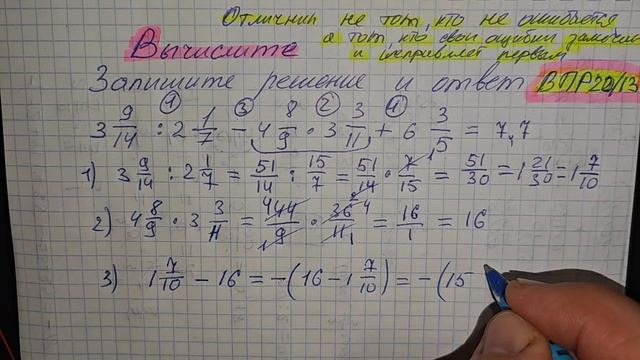 Отличник не тот, кто не ошибается
а тот, кто свои ошибки замечает
и исправляет первым
Вычислите
Запишите решение и ответ ВПР20/13
① ③ ② ④
3 9/14 : 2 1/7 − 4 8/9 · 3 3/11 + 6 3/5 = 7,7
1) 3 9/14 : 2 1/7 = 51/14 : 15/7 = 51/14 · 7/15 = 51/30 = 1 21/30 = 1 7/10
2) 4 8/9 · 3 3/11 = 444/9 · 36/11 = 16/1 = 16
3) 1 7/10 − 16 = −(16 − 1 7/10) = −(15